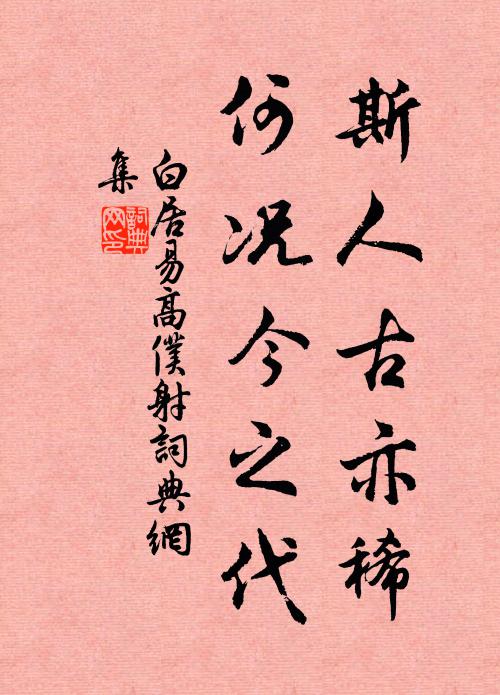 斯人古亦稀
何况今之代
白居易高僕射詞典網
集
詞典网印